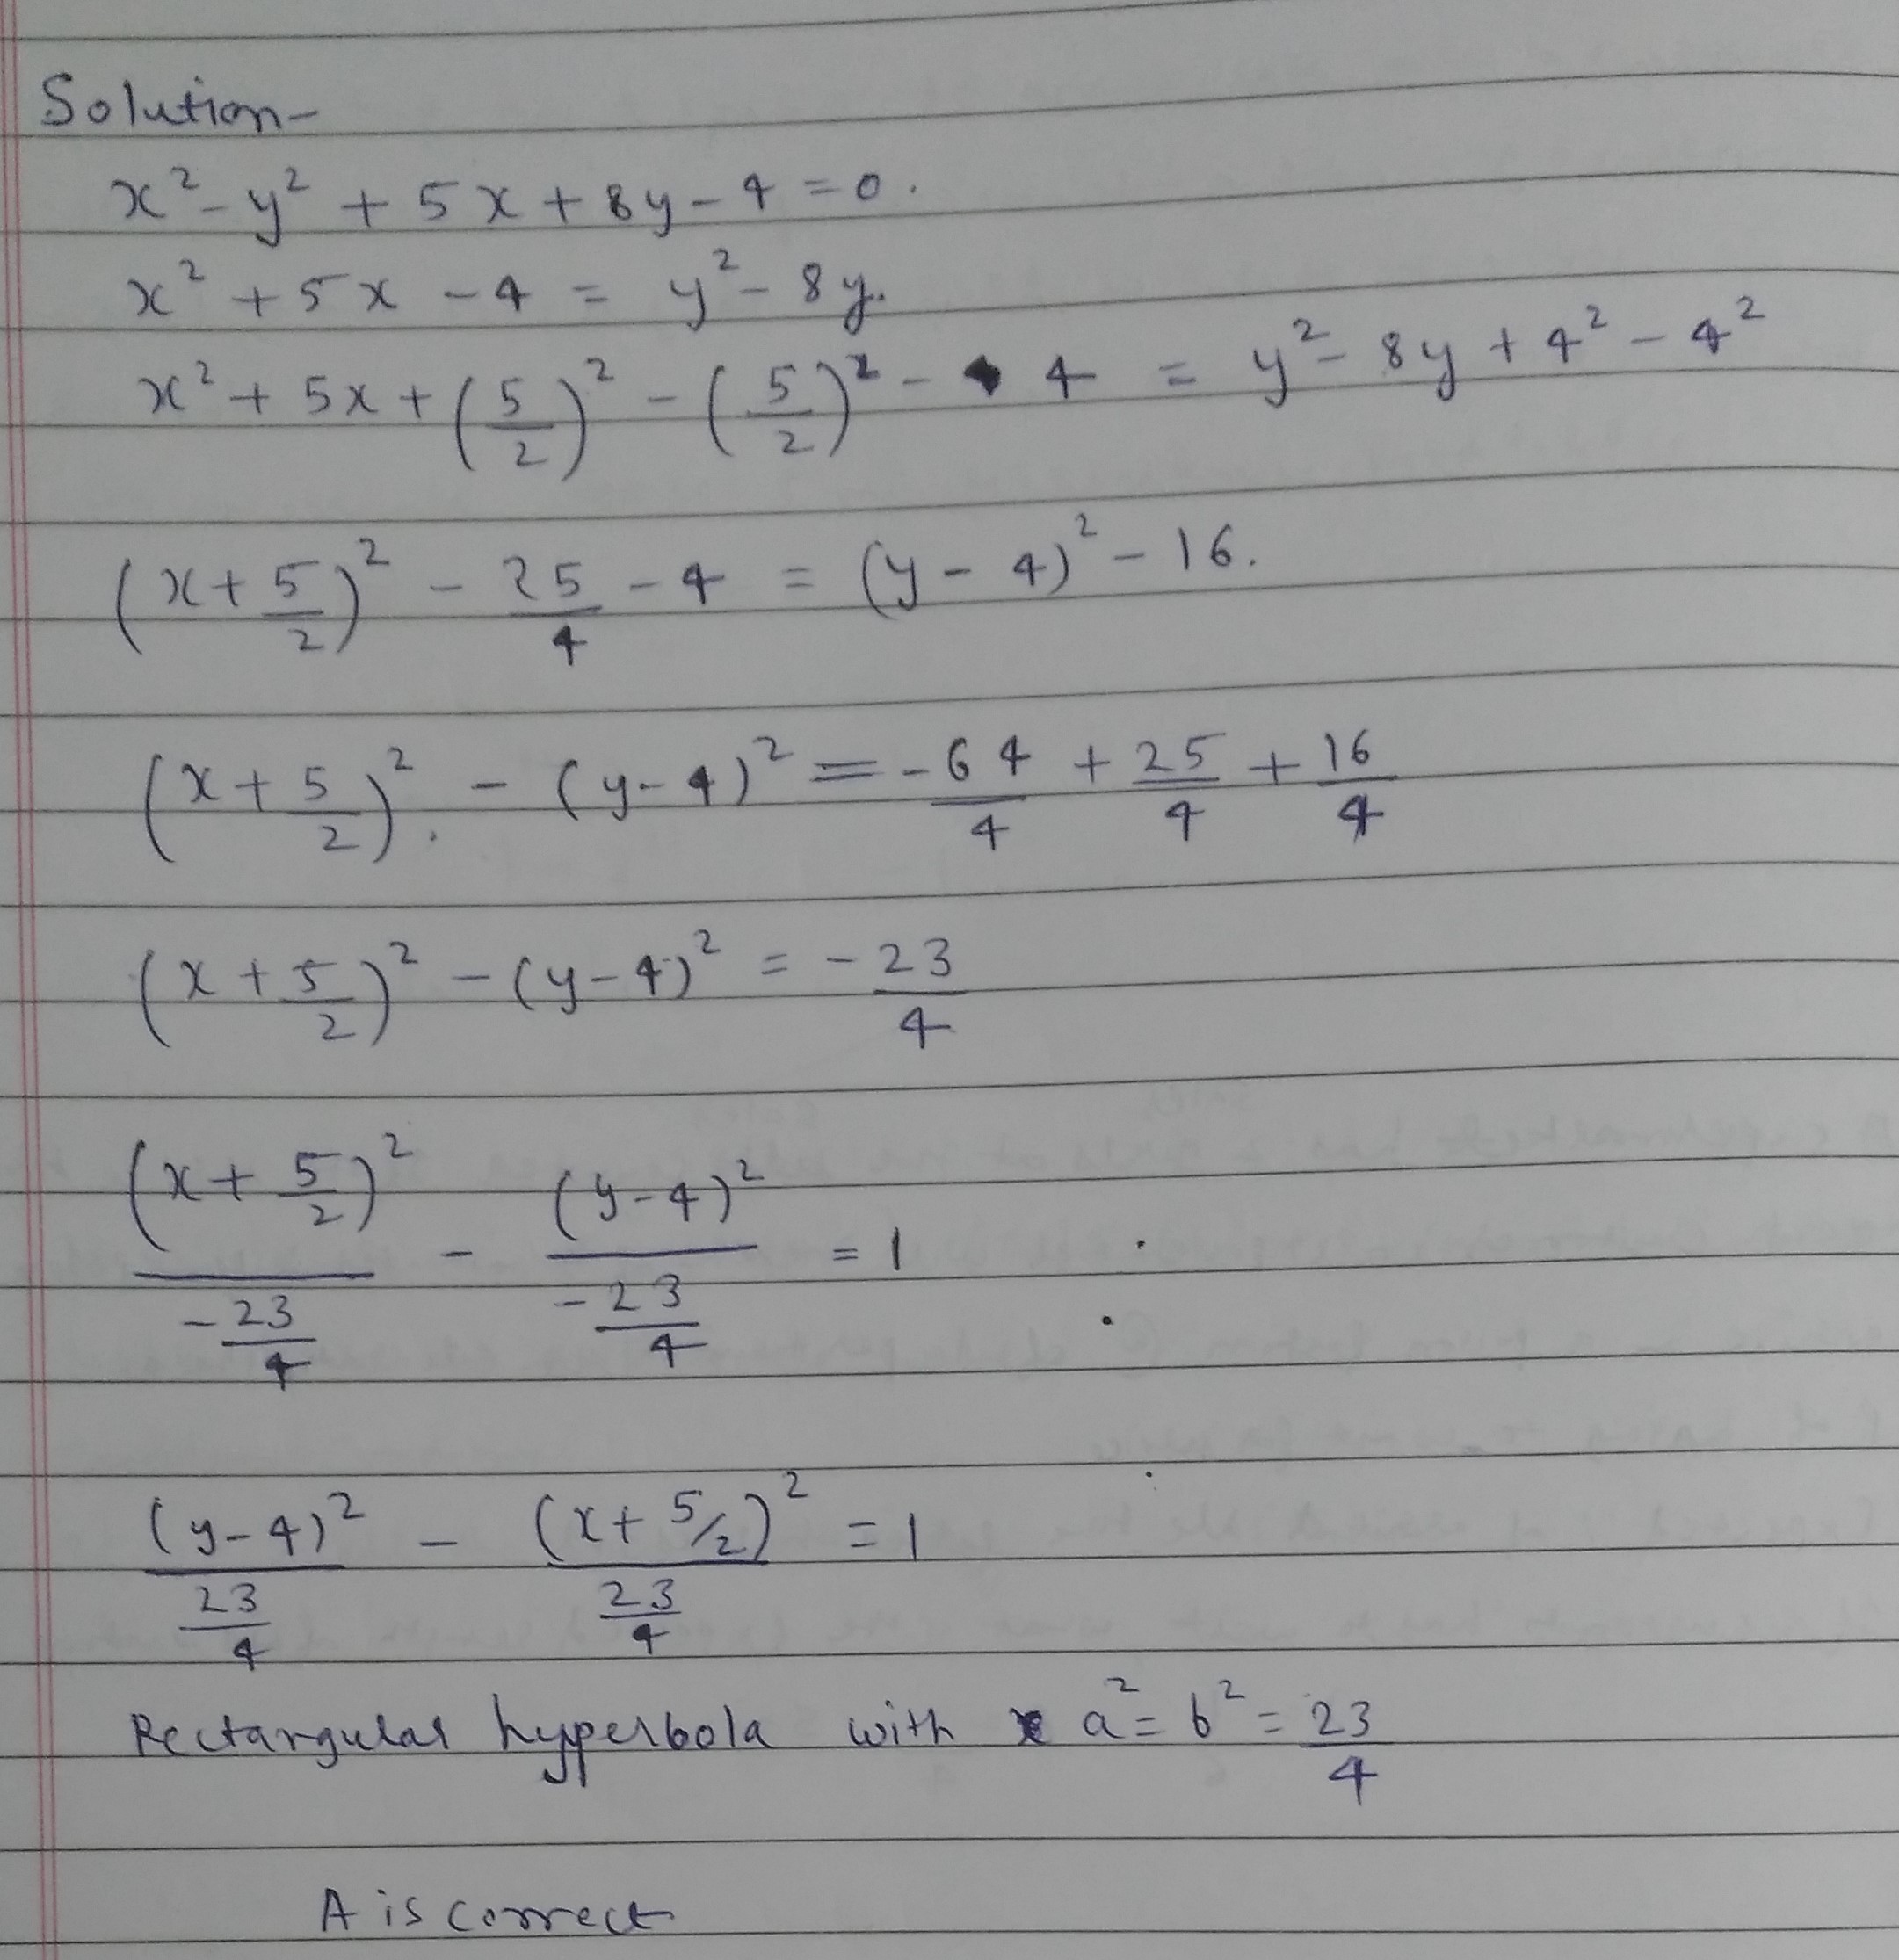 Solution-
x² - y² + 5x + 8y - 4 = 0.
x² + 5x - 4 = y² - 8y.
x² + 5x + (5/2)² - (5/2)² - 4 = y² - 8y + 4² - 4²
(x + 5/2)² - 25/4 - 4 = (y - 4)² - 16.
(x + 5/2)² - (y - 4)² = -64/4 + 25/4 + 16/4
(x + 5/2)² - (y - 4)² = -23/4
(x + 5/2)²/(-23/4) - (y - 4)²/(-23/4) = 1
(y - 4)²/(23/4) - (x + 5/2)²/(23/4) = 1
Rectangular hyperbola with a² = b² = 23/4
A is correct